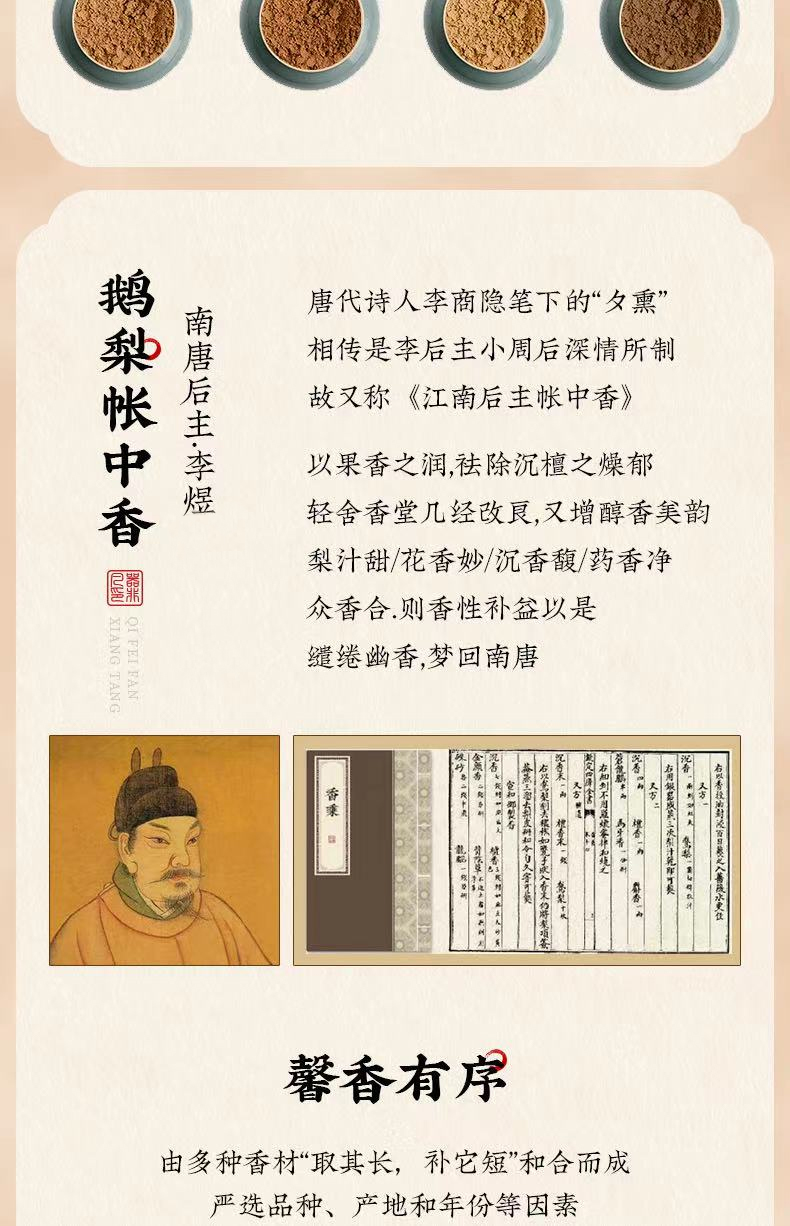 鹅梨帐中香
南唐后主·李煜
QI FEI FAN
XIANG TANG
唐代诗人李商隐笔下的“夕熏”
相传是李后主小周后深情所制
故又称《江南后主帐中香》
以果香之润,祛除沉檀之燥郁
轻舍香堂几经改良,又增醇香美韵
梨汁甜/花香妙/沉香馥/药香净
众香合.则香性补益以是
缱绻幽香,梦回南唐
香乘
馨香有序
由多种香材“取其长，补它短”和合而成
严选品种、产地和年份等因素